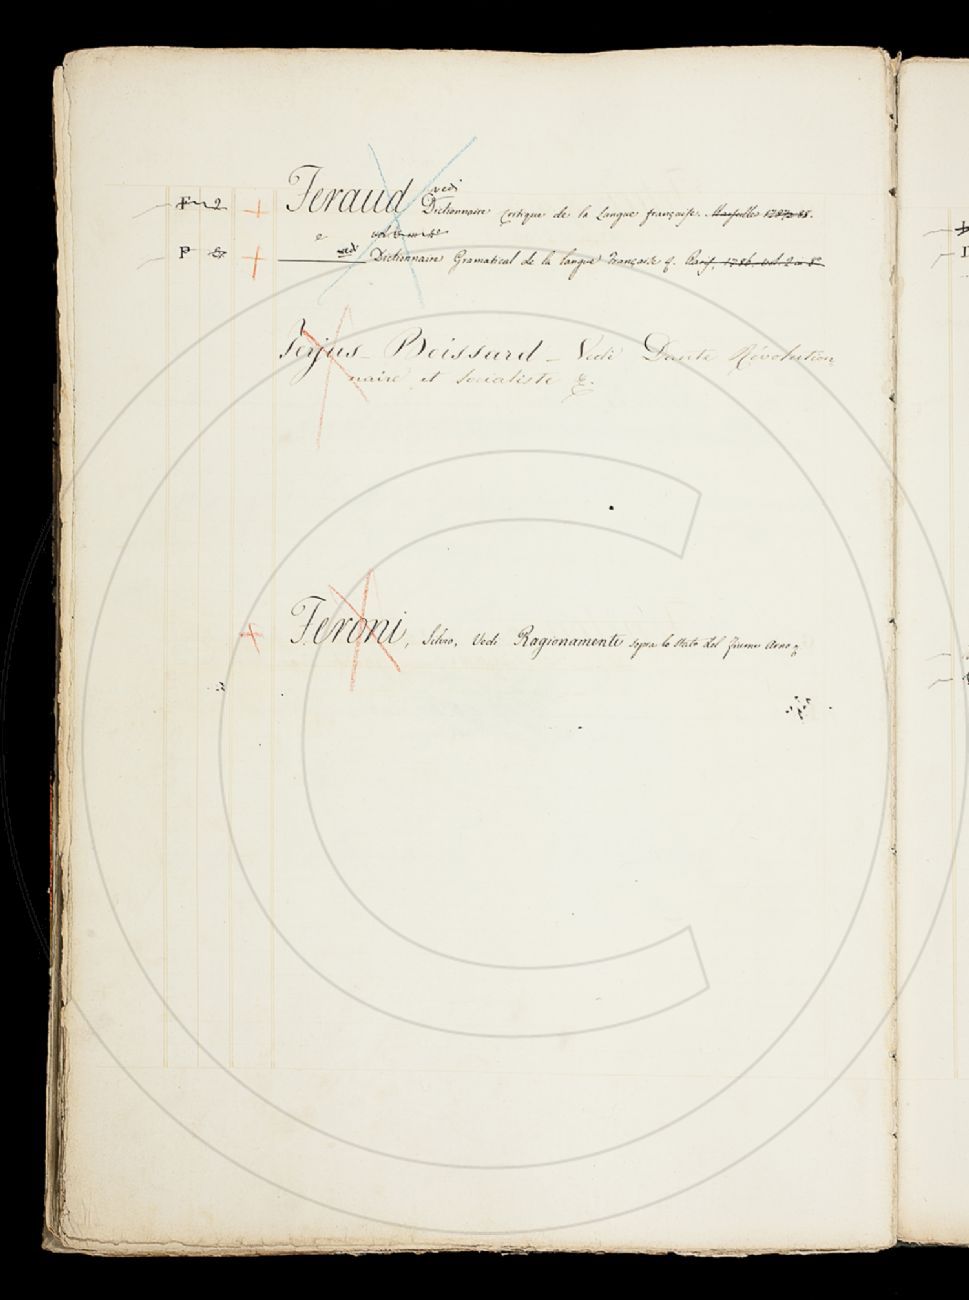 vedi
F 2 Feraud Dictionnaire critique de la Langue françaises. Marseilles 1787 = 88.
vol. in 4º
P vedi Dictionnaire Gramatical de la langue Françoise &. Paris, 1786, vol. 2 in 8º
Ferjus-Boissard - Vedi Dante Révolution
naire et socialiste &.
Feroni, Silvio, Vedi Ragionamento sopra lo stato del fiume Arno &